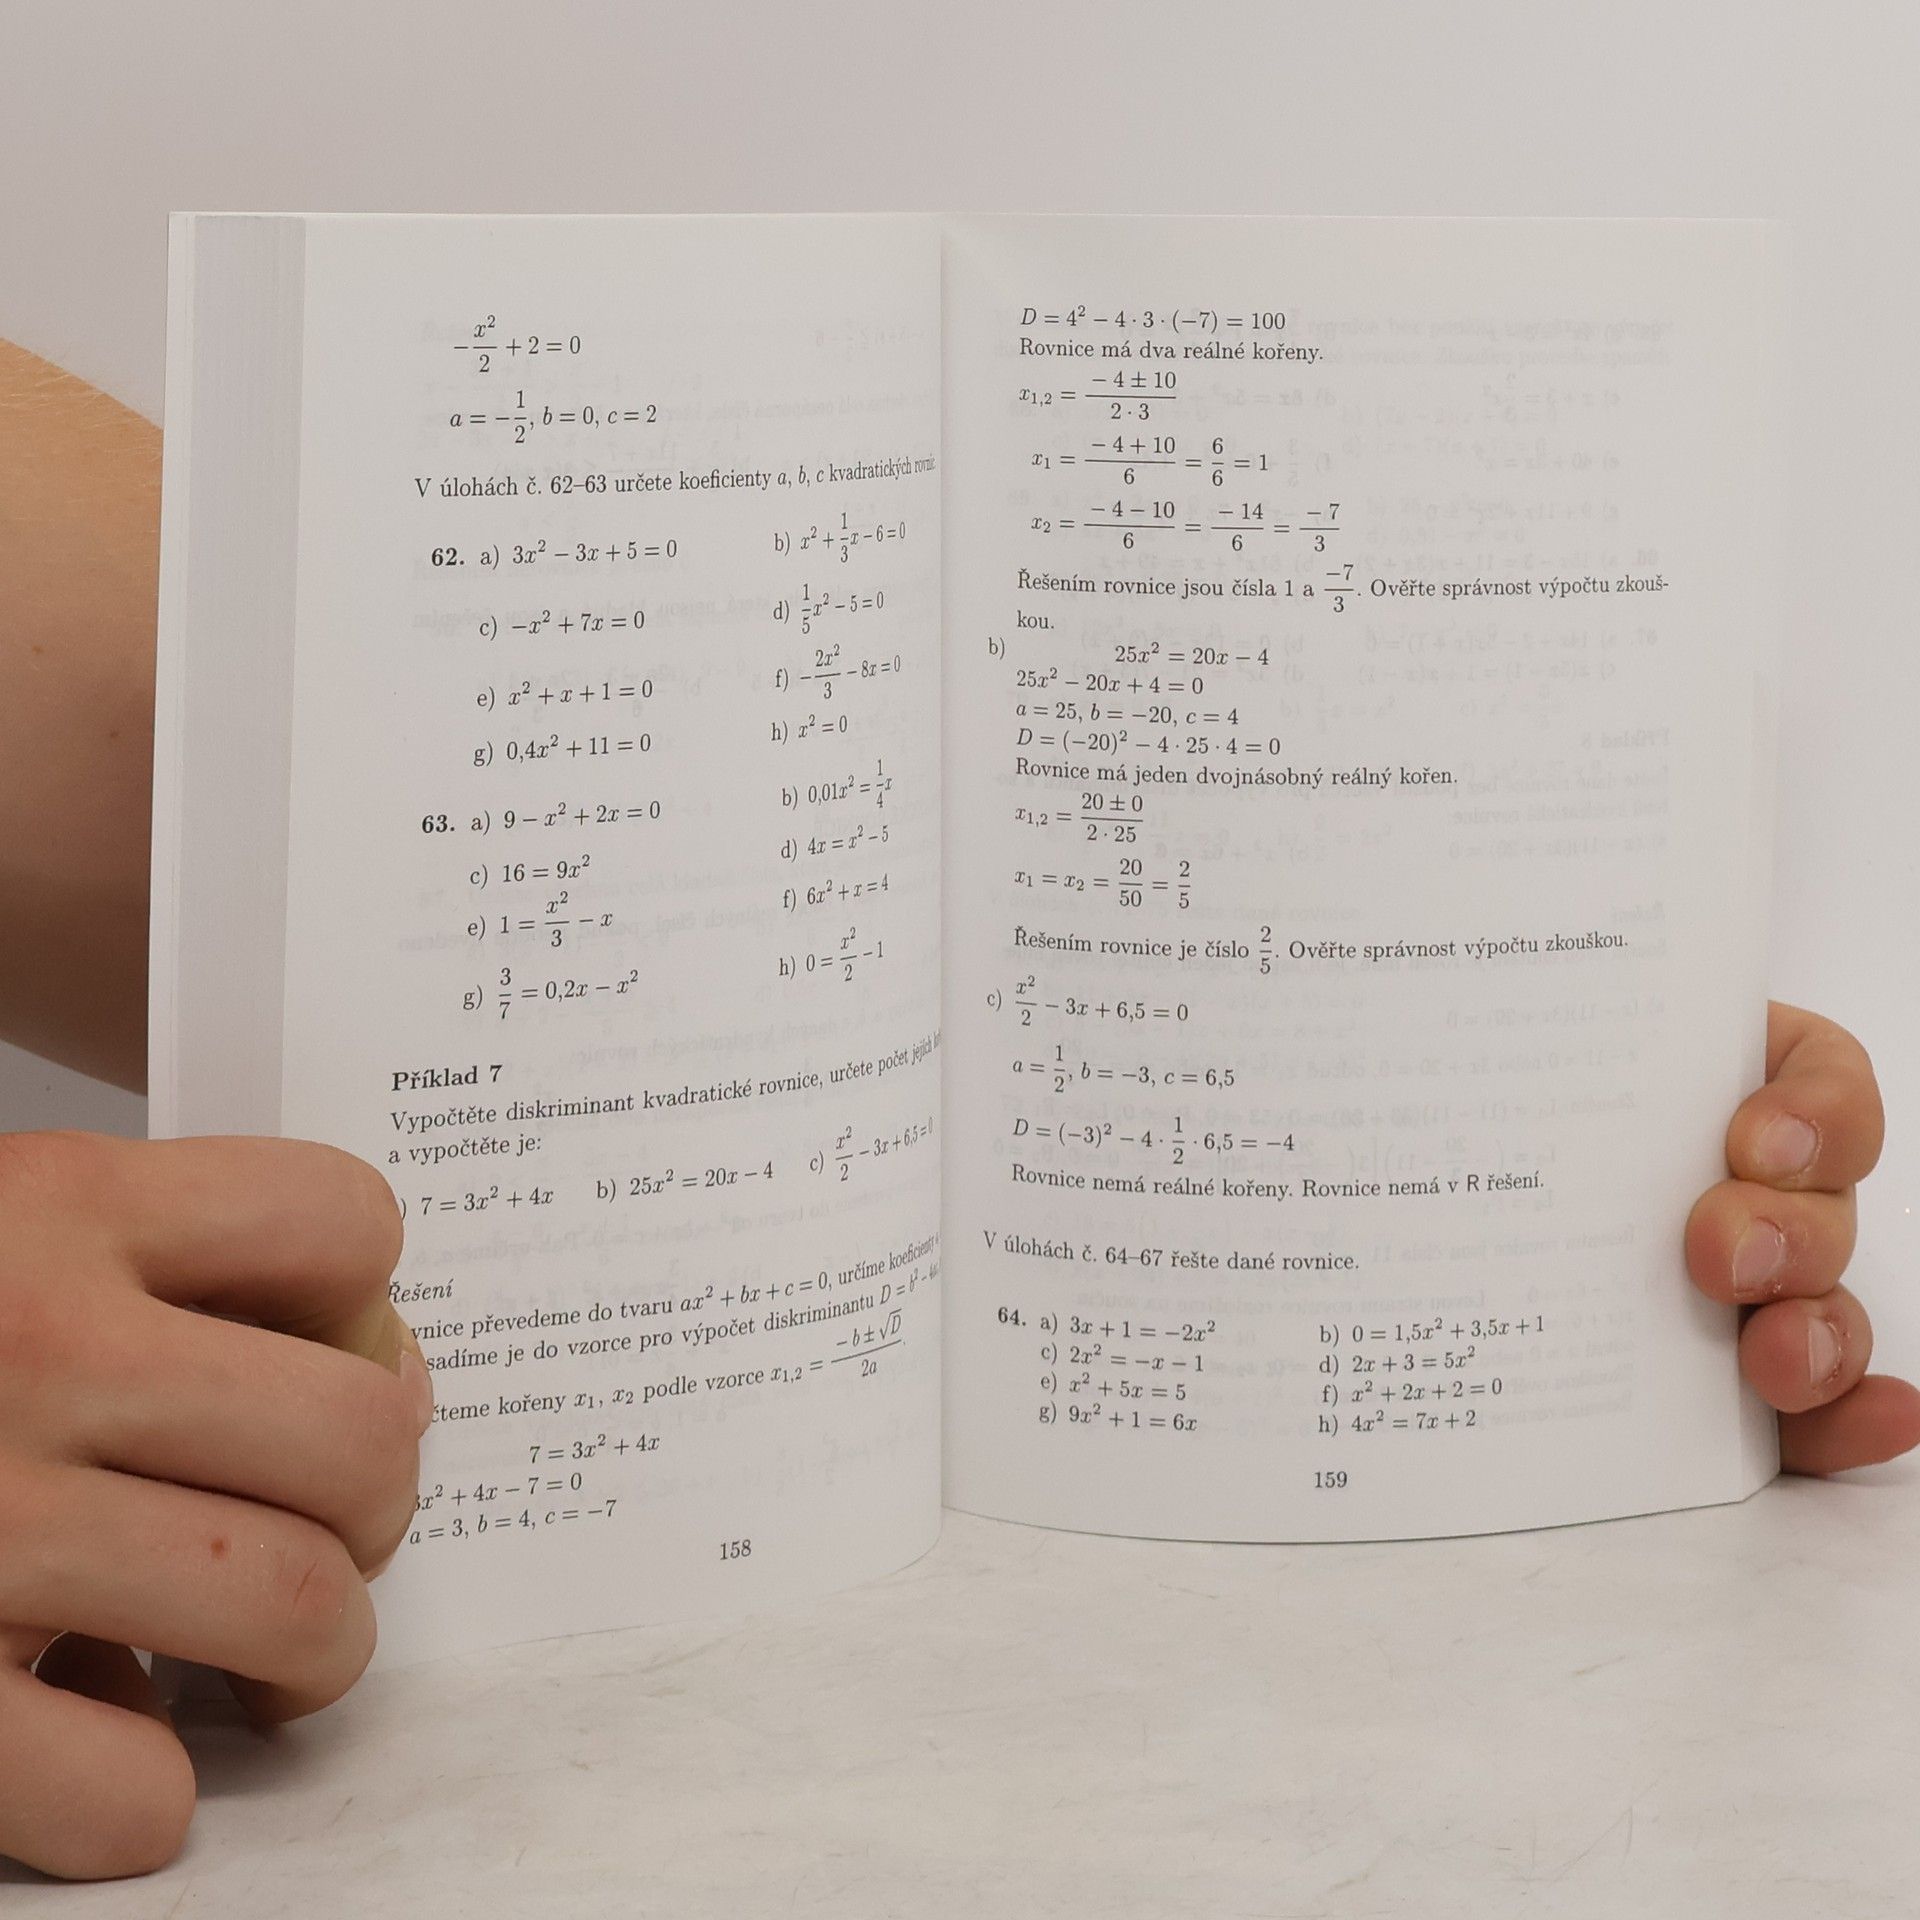 −x²/2 + 2 = 0
a = −1/2, b = 0, c = 2
V úlohách č. 62–63 určete koeficienty a, b, c kvadratických
62. a) 3x² − 3x + 5 = 0 b) x² + 1/3x − 6 = 0
c) −x² + 7x = 0 d) 1/5x² − 5 = 0
e) x² + x + 1 = 0 f) −2x²/3 − 8x = 0
g) 0,4x² + 11 = 0 h) x² = 0
63. a) 9 − x² + 2x = 0 b) 0,01x² = 1/4x
c) 16 = 9x² d) 4x = x² − 5
e) 1 = x²/3 − x f) 6x² + x = 4
g) 3/7 = 0,2x − x² h) 0 = x²/2 − 1
Příklad 7
Vypočtěte diskriminant kvadratické rovnice, určete počet jejích
a vypočtěte je:
) 7 = 3x² + 4x b) 25x² = 20x − 4 c) x²/2 − 3x + 6,5 = 0
Řešení
vnice převedeme do tvaru ax² + bx + c = 0, určíme koeficienty
sadíme je do vzorce pro výpočet diskriminantu D = b² −
čteme kořeny x₁, x₂ podle vzorce x₁,₂ = (−b ± √D)/2a.
7 = 3x² + 4x
3x² + 4x − 7 = 0
a = 3, b = 4, c = −7
158
D = 4² − 4 · 3 · (−7) = 100
Rovnice má dva reálné kořeny.
x₁,₂ = (−4 ± 10)/(2 · 3)
x₁ = (−4 + 10)/6 = 6/6 = 1
x₂ = (−4 − 10)/6 = −14/6 = −7/3
Řešením rovnice jsou čísla 1 a −7/3. Ověřte správnost výpočtu zkouš-
kou.
b) 25x² = 20x − 4
25x² − 20x + 4 = 0
a = 25, b = −20, c = 4
D = (−20)² − 4 · 25 · 4 = 0
Rovnice má jeden dvojnásobný reálný kořen.
x₁,₂ = (20 ± 0)/(2 · 25)
x₁ = x₂ = 20/50 = 2/5
Řešením rovnice je číslo 2/5. Ověřte správnost výpočtu zkouškou.
c) x²/2 − 3x + 6,5 = 0
a = 1/2, b = −3, c = 6,5
D = (−3)² − 4 · 1/2 · 6,5 = −4
Rovnice nemá reálné kořeny. Rovnice nemá v R řešení.
V úlohách č. 64–67 řešte dané rovnice.
64. a) 3x + 1 = −2x² b) 0 = 1,5x² + 3,5x + 1
c) 2x² = −x − 1 d) 2x + 3 = 5x²
e) x² + 5x = 5 f) x² + 2x + 2 = 0
g) 9x² + 1 = 6x h) 4x² = 7x + 2
159